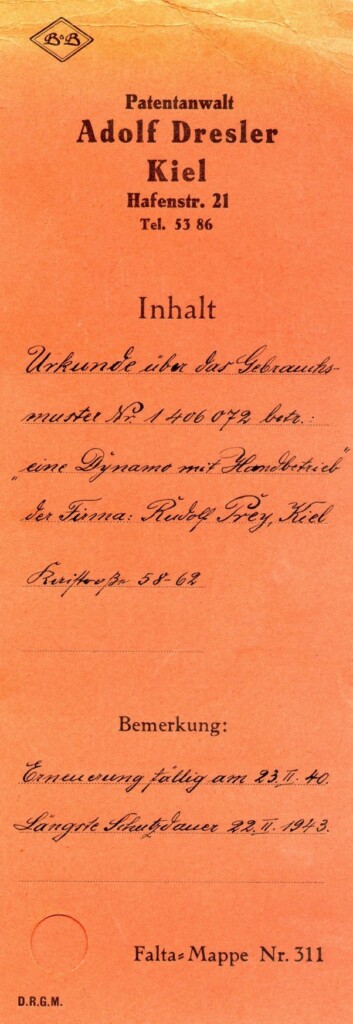 B&B
Patentanwalt
Adolf Dresler
Kiel
Hafenstr. 21
Tel. 53 86
Inhalt
Urkunde über das Gebrauchs-
muster Nr. 1 406 072 betr.:
„eine Dynamo mit Handbetrieb"
der Firma: Rudolf Prey, Kiel
58-62
Bemerkung:
Erneuerung fällig am 23. II. 40.
Längste Schutzdauer 22. II. 1943.
Falta=Mappe Nr. 311
D.R.G.M.